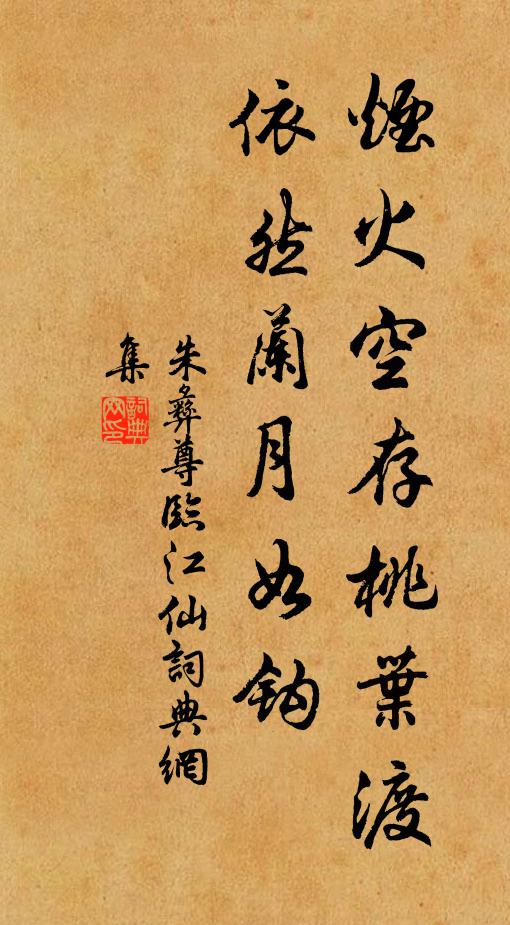 煙火空存桃葉渡
依然蘭月如鈎
朱彝尊臨江仙詞典網
集
詞典網印